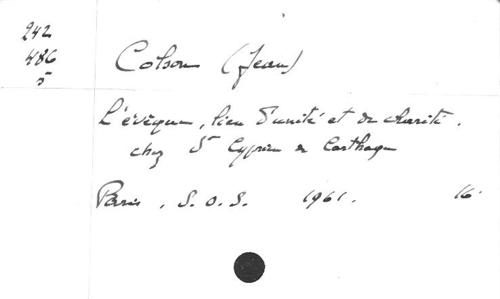 242
486
5
Colson (Jean)
L'évêque, lien d'unité et de charité.
chez St Cyprien de Carthage
Paris, S.O.S. 1961. 16°